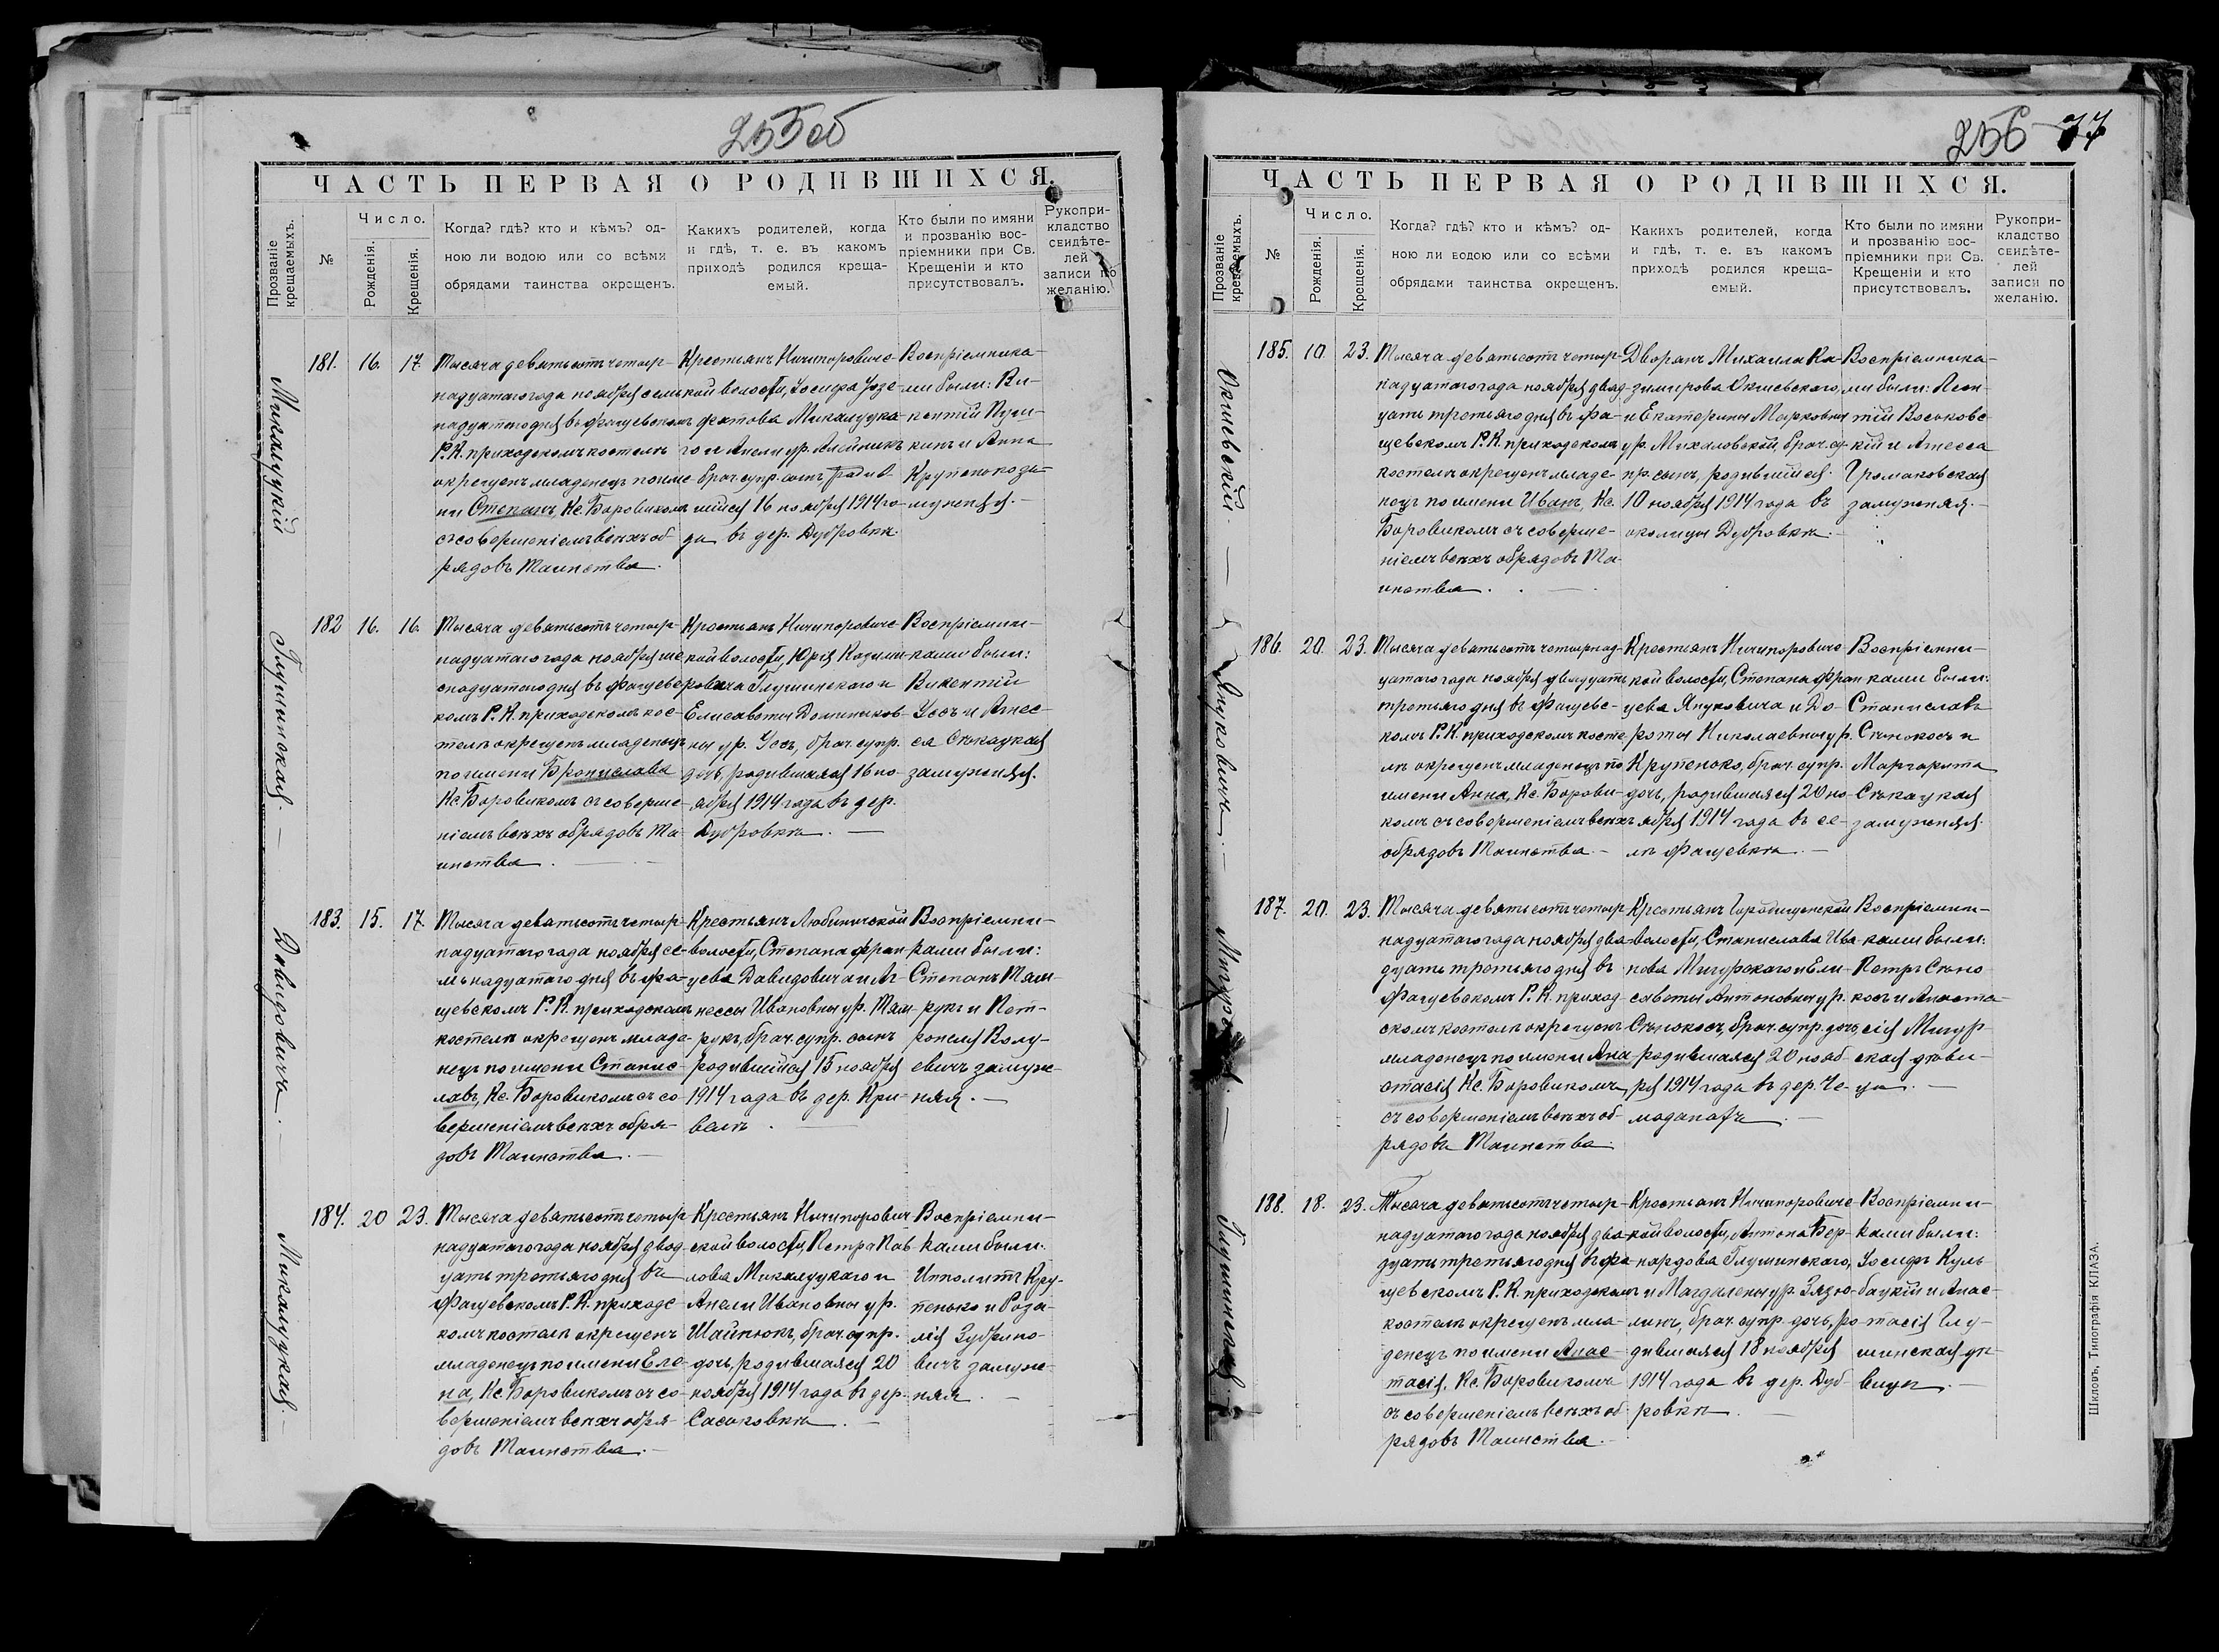 255об
ЧАСТЬ ПЕРВАЯ О РОДИВШИХСЯ.
Прозваніе крещаемыхъ.
№
Число.
Рожденія.
Крещенія.
Когда? гдѣ? кто и кѣмъ? од-
ною ли водою или со всѣми
обрядами таинства окрещенъ.
Какихъ родителей, когда
и гдѣ, т. е. въ какомъ
приходѣ родился креща-
емый.
Кто были по имяни
и прозванію вос-
пріемники при Св.
Крещеніи и кто
присутствовалъ.
Рукопри-
кладство
свидѣте-
лей
записи по
желанію.
Микалуцкій
181. 16. 17.
Тысяча девятьсотъ четыр-
надцатаго года ноября сем-
надцатаго дня въ Фащевскомъ
Р. К. приходскомъ костелѣ
окрещенъ младенецъ по име-
ни Степанъ, Кс. Боровикомъ
съ совершеніемъ всѣхъ об-
рядовъ Таинства.
Крестьянъ Ничипоровичс-
кой волости, Іосифа Іозе-
фатова Микалуцка-
го и Анели ур. Алейникъ
брач. супр. сынъ родив-
шійся 16 ноября 1914 го-
да въ дер. Дубровкѣ.
Воспріемника-
ми были: Ви-
кентій
и Анна
Крупенько за-
мужняя.
Глушинская.
182 16. 16.
Тысяча девятьсотъ четыр-
надцатаго года ноября ше-
снадцатаго дня въ Фащевс-
комъ Р. К. приходскомъ кос-
телѣ окрещенъ младенецъ
по имени Бронислава
Кс. Боровикомъ съ соверше-
ніемъ всѣхъ обрядовъ Та-
инства.
Крестьянъ Ничипоровичс-
кой волости, Юрія Казими-
ровича Глушинскаго и
Елисаветы Домиников-
ны ур. Усъ, брач. супр.
дочь, родившаяся 16 но-
ября 1914 года въ дер.
Дубровкѣ.
Воспріемни-
ками были:
Викентій
Усъ и Агнес-
са Сѣкацкая
замужняя.
Давидовичъ.
183. 15. 17.
Тысяча девятьсотъ четыр-
надцатаго года ноября се-
мьнадцатаго дня въ Фа-
щевскомъ Р. К. приходскомъ
костелѣ окрещенъ младе-
нецъ по имени Станис-
лавъ, Кс. Боровикомъ съ со-
вершеніемъ всѣхъ обря-
довъ Таинства.
Крестьянъ Любиничской
волости, Степана Фран-
цева Давидовича и Аг-
нессы Ивановны ур. Там-
рукъ, брач. супр. сынъ
родившійся 15 ноября
1914 года въ дер. Кри-
велѣ.
Воспріемни-
ками были:
Степанъ Там-
рукъ и Пет-
ронеля Валу-
евичъ замуж-
няя.
Микалуцкая.
184. 20 23.
Тысяча девятьсотъ четыр-
надцатаго года ноября двад-
цать третьяго дня въ
Фащевскомъ Р. К. приходс-
комъ костелѣ окрещенъ
младенецъ по имени Еле-
на, Кс. Боровикомъ съ со-
вершеніемъ всѣхъ обря-
довъ Таинства.
Крестьянъ Ничипорович-
ской волости, Петра Пав-
лова Микалуцкаго и
Анели Ивановны ур.
Шайнюкъ, брач. супр.
дочь, родившаяся 20
ноября 1914 года въ дер.
Сасаковкѣ.
Воспріемни-
ками были:
Ипполитъ Кру-
пенько и Роза-
лія Зубрино-
вичъ замуж-
няя.
256 77
ЧАСТЬ ПЕРВАЯ О РОДИВШИХСЯ.
Прозваніе крещаемыхъ.
№
Число.
Рожденія.
Крещенія.
Когда? гдѣ? кто и кѣмъ? од-
ною ли водою или со всѣми
обрядами таинства окрещенъ.
Какихъ родителей, когда
и гдѣ, т. е. въ какомъ
приходѣ родился креща-
емый.
Кто были по имяни
и прозванію вос-
пріемники при Св.
Крещеніи и кто
присутствовалъ.
Рукопри-
кладство
свидѣте-
лей
записи по
желанію.
185. 10. 23.
Тысяча девятьсотъ четыр-
надцатаго года ноября двад-
цать третьяго дня въ Фа-
щевскомъ Р. К. приходскомъ
костелѣ окрещенъ младе-
нецъ по имени Иванъ, Кс.
Боровикомъ съ соверше-
ніемъ всѣхъ обрядовъ Та-
инства.
Дворянъ Михаила Ка-
зимирова
и Екатерины Марковны
ур. Михаловской, брач. су-
пр. сынъ, родившійся
10 ноября 1914 года въ
околицы Дубровкѣ.
Воспріемника-
ми были: Леон-
тій Воськовс-
кій и Агнесса
Громаковская
замужняя.
Януковичъ.
186. 20. 23.
Тысяча девятьсотъ четырнад-
цатаго года ноября двадцать
третьяго дня въ Фащевс-
комъ Р. К. приходскомъ косте-
лѣ окрещенъ младенецъ по
имени Анна, Кс. Борови-
комъ съ совершеніемъ всѣхъ
обрядовъ Таинства.
Крестьянъ Ничипоровичс-
кой волости, Степана Фран-
цева Януковича и До-
роты Николаевны ур.
Крупенько, брач. супр.
дочь, родившаяся 20 но-
ября 1914 года въ се-
лѣ Фащевкѣ.
Воспріемни-
ками были:
Станиславъ
Сѣнокосъ и
Маргарита
Сѣкацкая
замужняя.
187. 20. 23.
Тысяча девятьсотъ четыр-
надцатаго года ноября два-
дцать третьяго дня въ
Фащевскомъ Р. К. приход-
скомъ костелѣ окрещенъ
младенецъ по имени Ана-
стасія Кс. Боровикомъ,
съ совершеніемъ всѣхъ об-
рядовъ Таинства.
Крестьянъ Городищенской
волости, Станислава Ива-
нова Мигурскаго и Ели-
саветы Антоновны ур.
Сѣнокосъ, брач. супр. дочь
родившаяся 20 нояб-
ря 1914 года въ дер. Че-
моданахъ.
Воспріемни-
ками были:
Петръ Сѣно-
косъ и Анаста-
сія Мигур-
ская дѣви-
ца.
Глушинская.
188. 18. 23.
Тысяча девятьсотъ четыр-
надцатаго года ноября два-
дцать третьяго дня въ Фа-
щевскомъ Р. К. приходскомъ
костелѣ окрещенъ мла-
денецъ по имени Анас-
тасія, Кс. Боровикомъ
съ совершеніемъ всѣхъ об-
рядовъ Таинства.
Крестьянъ Ничипоровичс-
кой волости, Антона Бер-
нардова Глушинскаго,
и Магдалены ур. Зязю-
линъ, брач. супр. дочь, ро-
дившаяся 18 ноября
1914 года въ дер. Дуб-
ровкѣ.
Воспріемни-
ками были:
Іосифъ Куль-
бацкій и Анас-
тасія Глу-
шинская дѣ-
вица.
Шкловъ, Типографія КЛАЗА.